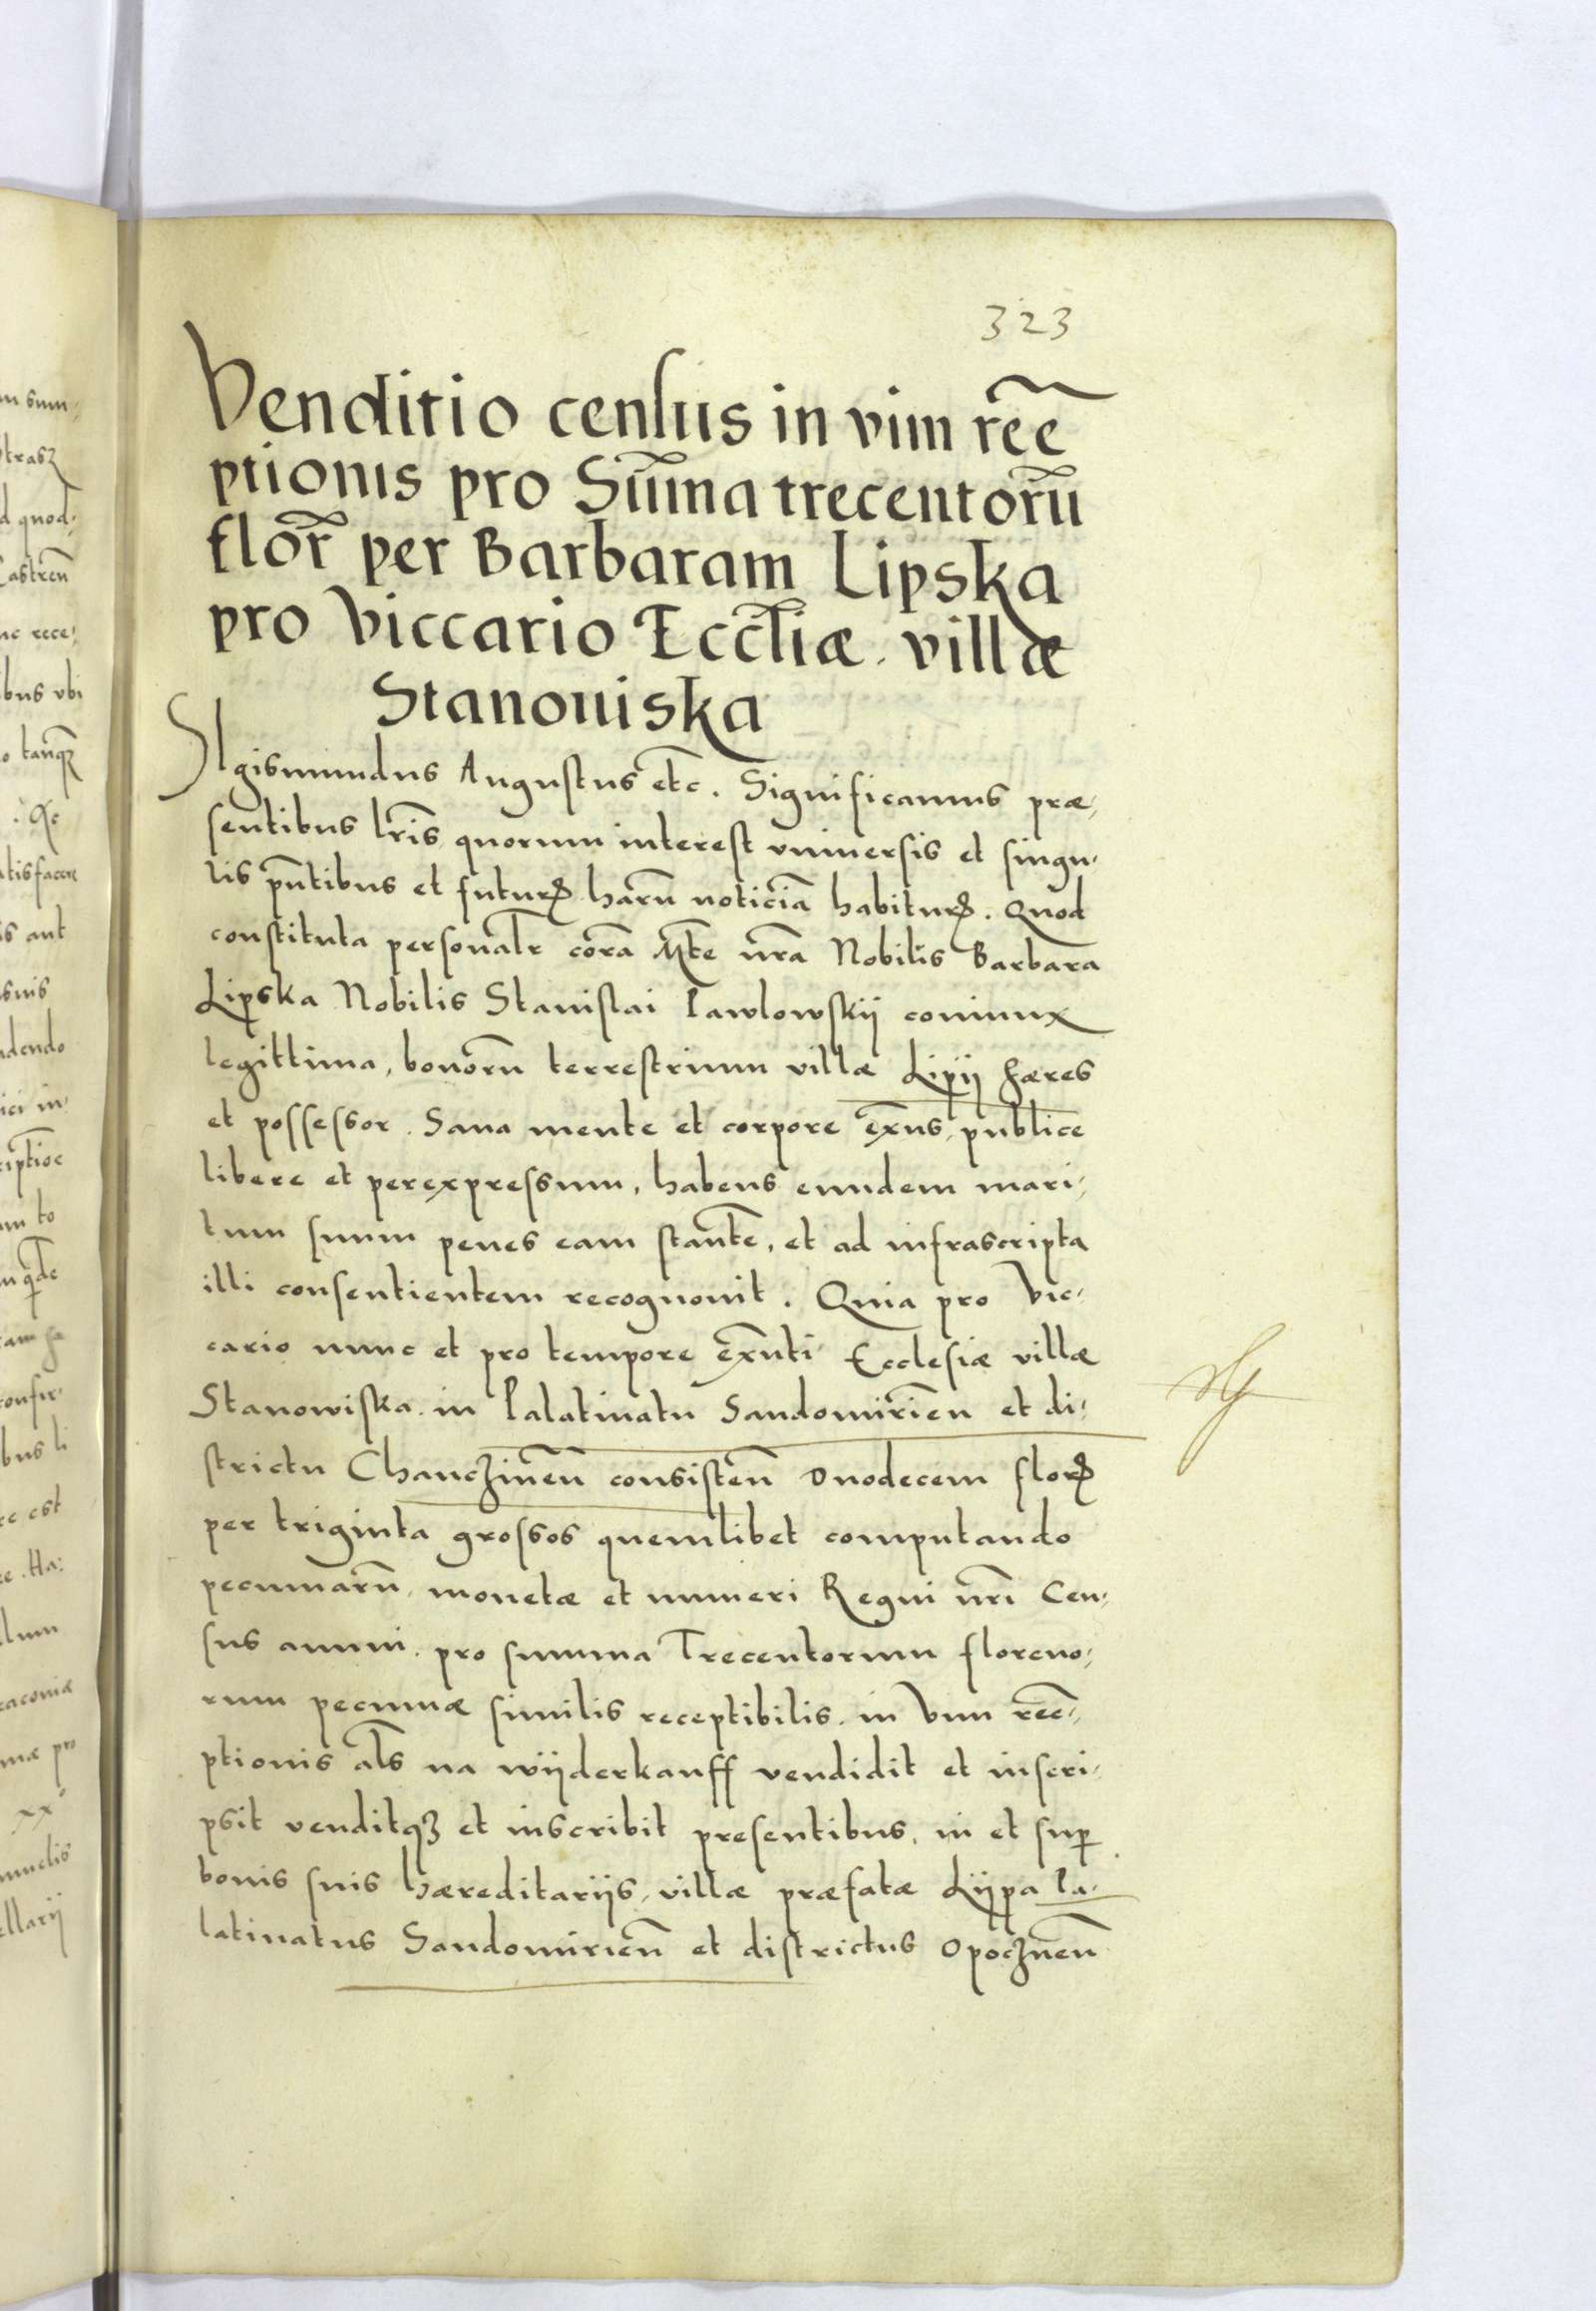 323
Venditio census in vim rẽe
ptionis pro Sũma trecentorũ
flor̃ per Barbaram Lipska
pro Viccario Eccl̃iæ villæ
Stanouiska
SIgismundus Augustus etc̃. Significamus præ,
sentibus lr̃is quorum interest vniuersis et singu,
lis pñtibus et futurꝝ harũ noticiã habiturꝝ. Quod
constituta personalr̃ corã Mt̃e nr̃a Nobilis Barbara
Lipska Nobilis Stanislai Pawlowskij coniunx
legittima, bonorũ terrestrium villæ Lipij hæres
et possessor. Sana mente et corpore ex̃ns, publice
libere et perexpressum, habens eundem mari,
tum suum penes eam stantẽ, et ad infrascripta
illi consentientem recognouit. Quia pro Vic,
cario nunc et pro tempore ex̃nti Ecclesiæ villæ
Stanowiska in Palatinatu Sandomirieñ et di,
strictu Chanczineñ consisteñ Duodecem florꝝ
per triginta grossos quemlibet computando
pecuniarũ monetæ et numeri Regni nr̃i Cen,
sus annui pro summa Trecentorum floreno,
rum pecuniæ similis receptibilis in Vim reẽ,
ptionis al̃s na wijderkauff vendidit et inscri,
psit venditqꝫ et inscribit presentibus, in et suꝑ
bonis suis hæreditarijs, villæ præfatæ Lijpa Pa,
latinatus Sandomirieñ et districtus Opoczneñ